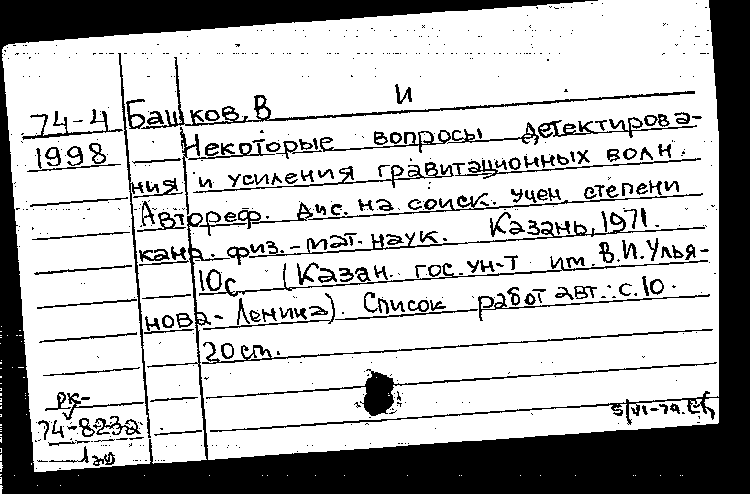 74-4 Башков, В И
1998 Некоторые вопросы детектирова-
ния и усиления гравитационных волн.
Автореф. дис. на соиск. учен. степени
канд. физ.-мат. наук. Казань, 1971.
10с. (Казан. гос. ун-т им. В.И. Улья-
нова-Ленина). Список работ авт.: с.10.
20 см.
РК-
74-8232 5/VI-74.
1 экз